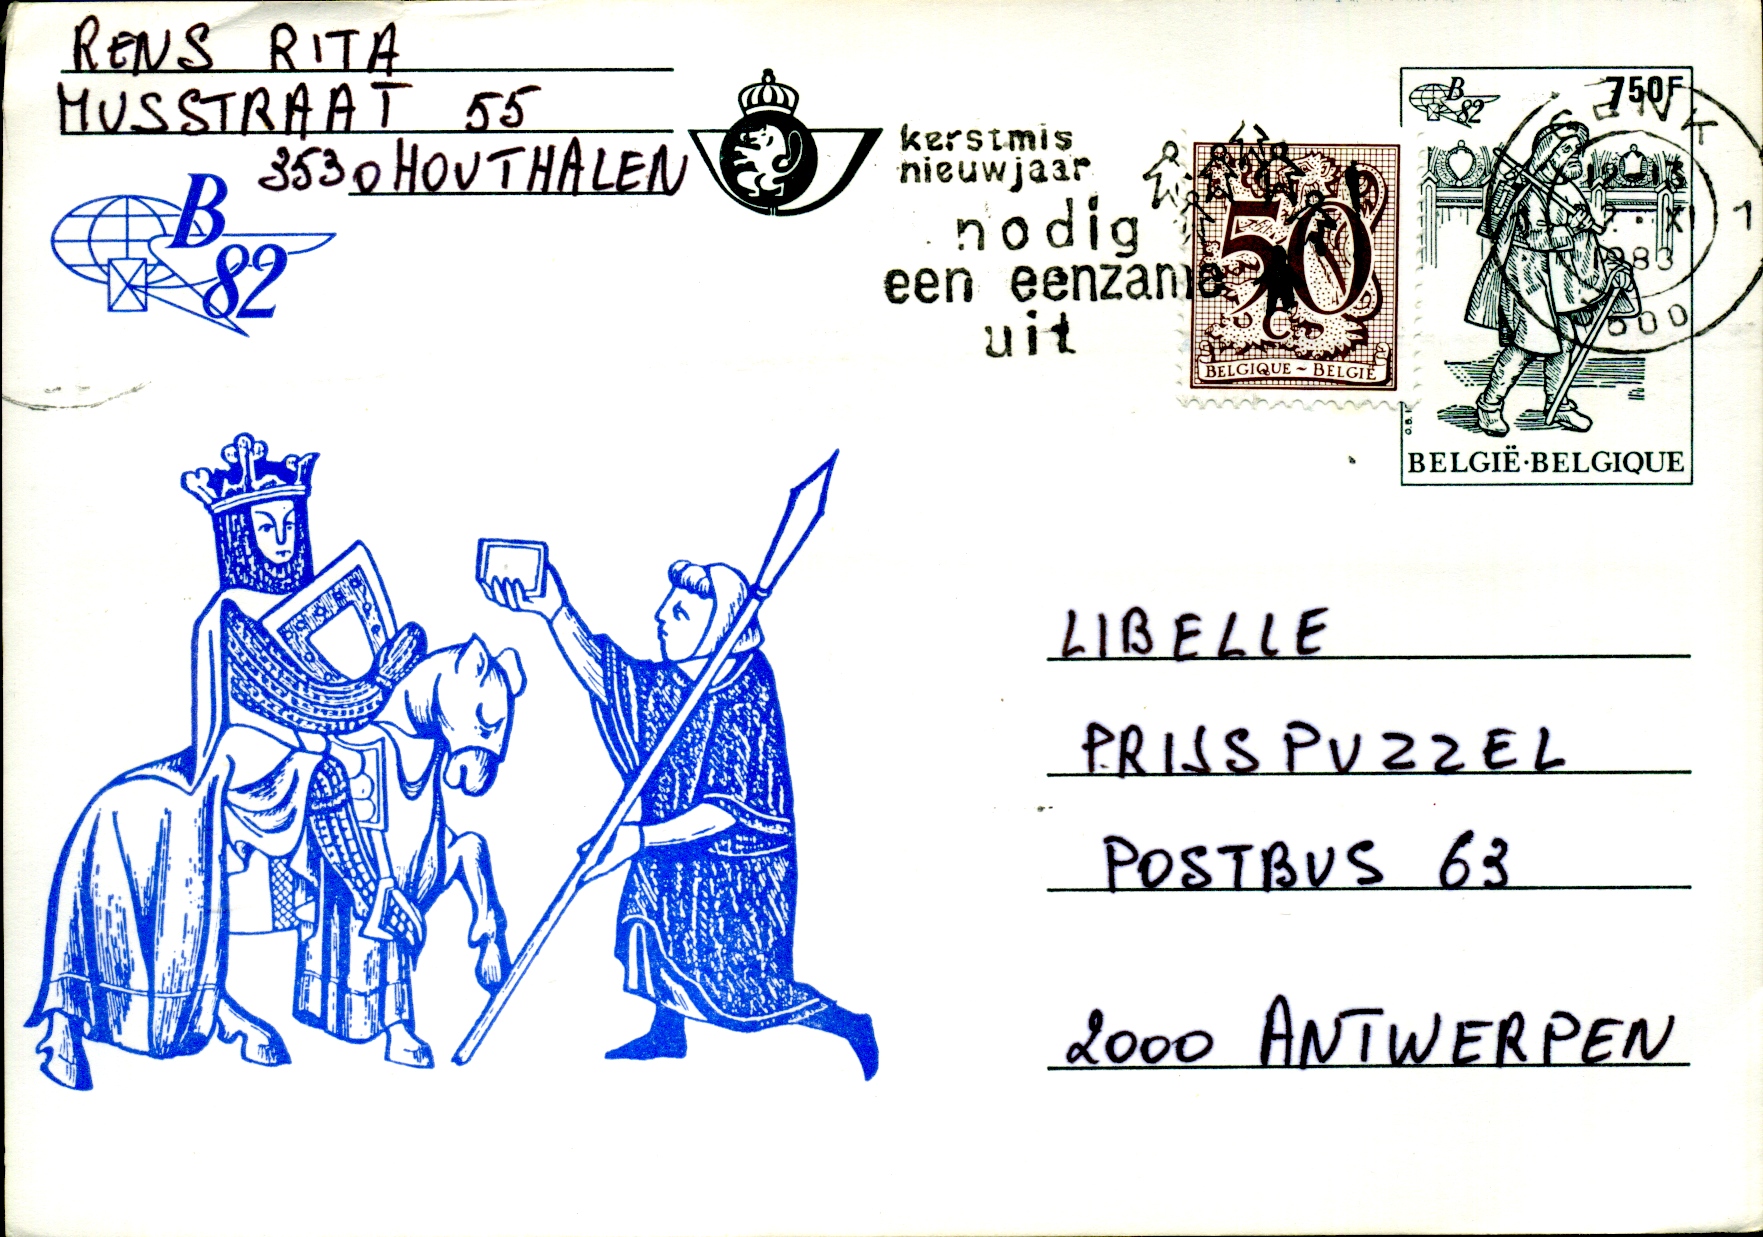 RENS RITA
MUSSTRAAT 55
3530 HOUTHALEN
B
82
kerstmis
nieuwjaar
nodig
een eenzame
uit
50
BELGIQUE ~ BELGIË
B
82
750F
GENK
1
BELGIË·BELGIQUE
LIBELLE
PRIJSPUZZEL
POSTBUS 63
2000 ANTWERPEN